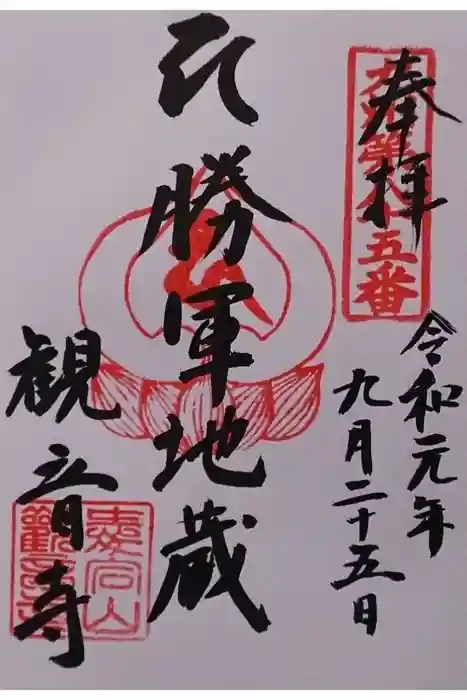 奉拝
五番
令和元年
九月二十五日
勝軍地蔵
観音寺